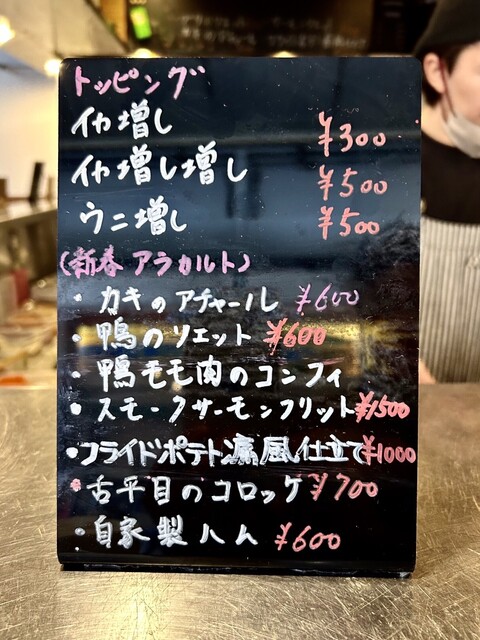 トッピング
イカ増し ¥300
イカ増し増し ¥500
ウニ増し ¥500
(新春アラカルト)
・カキのアチャール ¥600
・鴨のリエット ¥600
・鴨モモ肉のコンフィ
・スモークサーモンフリット ¥1500
・フライドポテト痛風仕立て ¥1000
・舌平目のコロッケ ¥700
・自家製ハム ¥600